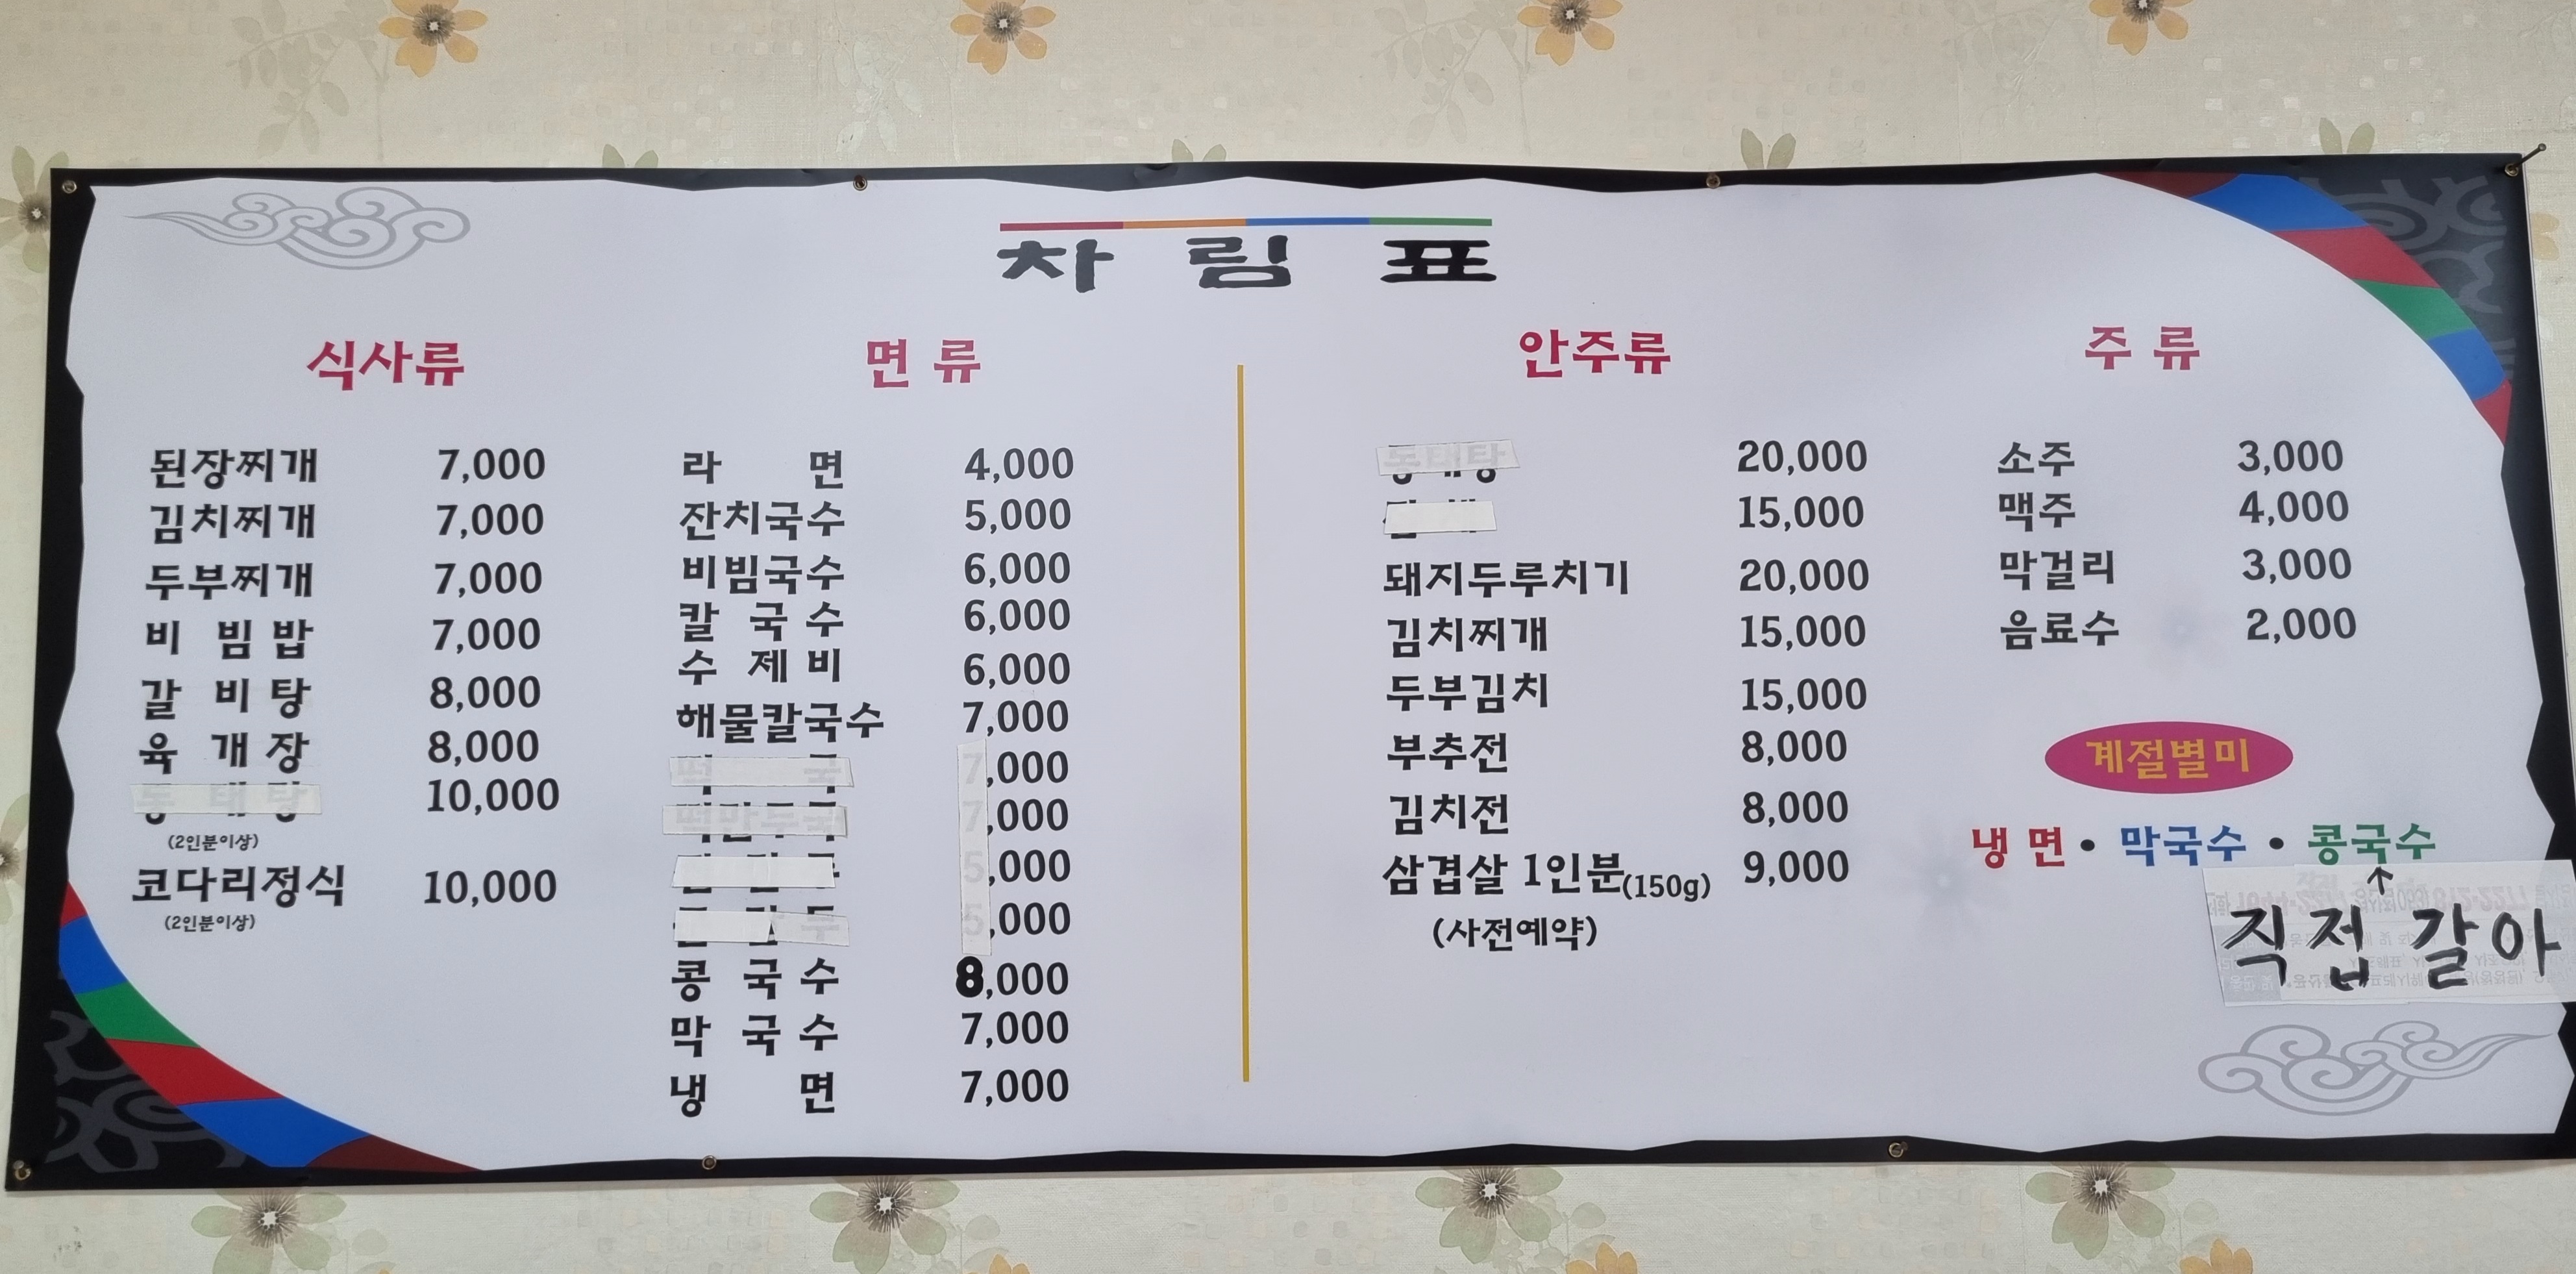 차림표
식사류
된장찌개 7,000
김치찌개 7,000
두부찌개 7,000
비빔밥 7,000
갈비탕 8,000
육개장 8,000
동태탕 10,000
(2인분이상)
코다리정식 10,000
(2인분이상)
면류
라면 4,000
잔치국수 5,000
비빔국수 6,000
칼국수 6,000
수제비 6,000
해물칼국수 7,000
떡국 7,000
떡만두국 7,000
5,000
5,000
콩국수 8,000
막국수 7,000
냉면 7,000
안주류
동태탕 20,000
15,000
돼지두루치기 20,000
김치찌개 15,000
두부김치 15,000
부추전 8,000
김치전 8,000
삼겹살 1인분(150g) 9,000
(사전예약)
주류
소주 3,000
맥주 4,000
막걸리 3,000
음료수 2,000
계절별미
냉면 • 막국수 • 콩국수
↑
직접 갈아